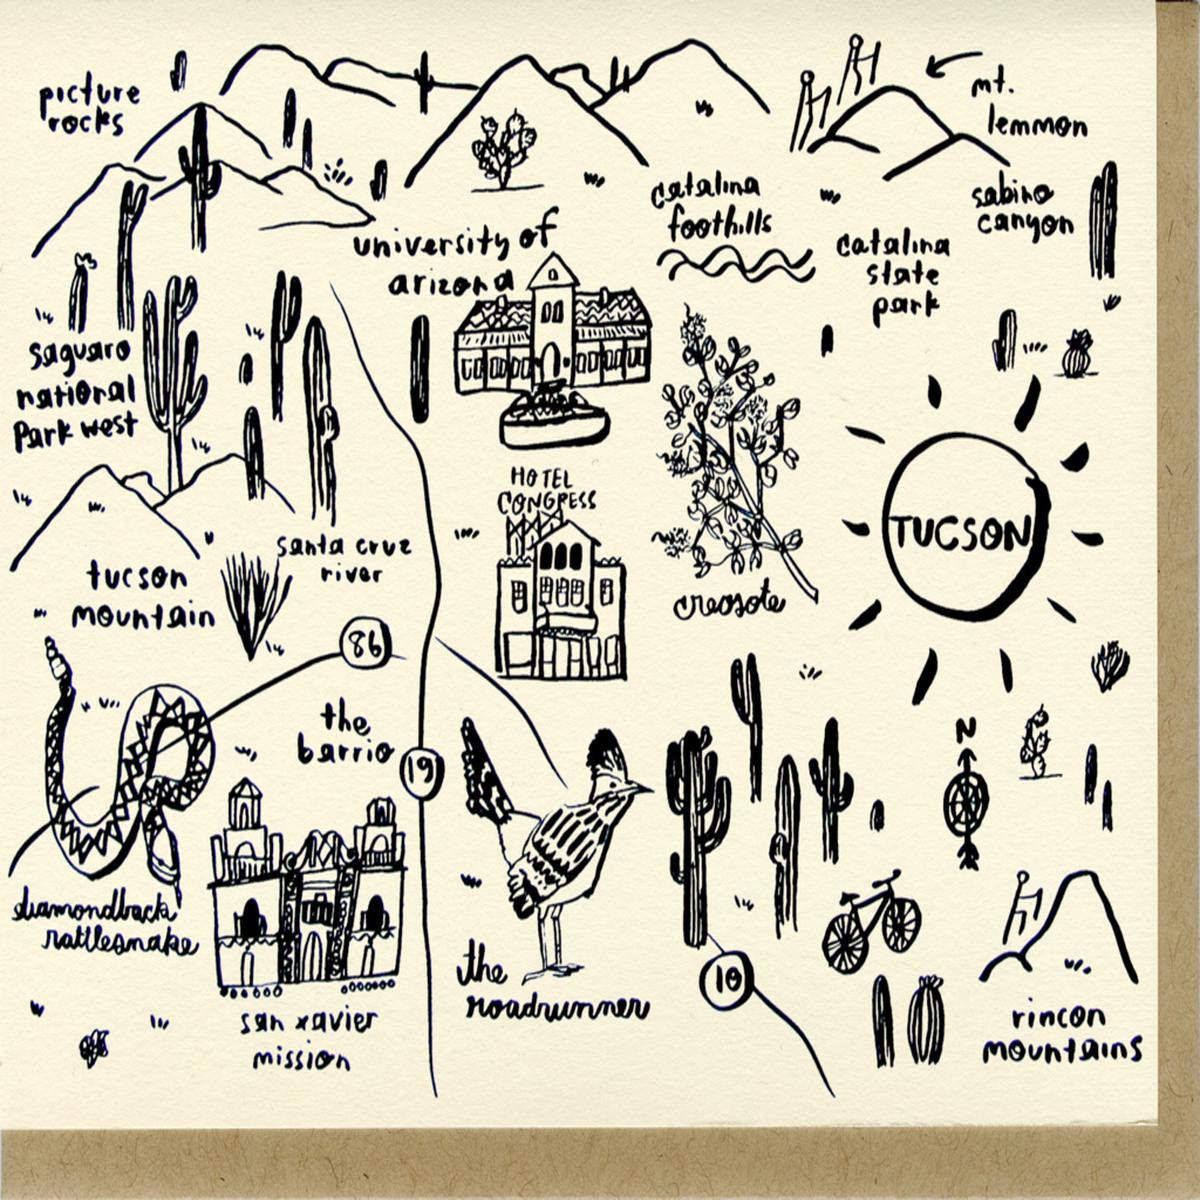 picture
rocks
mt.
lemmon
catalina
foothills
sabino
canyon
university of
arizona
catalina
state
park
saguaro
national
Park west
HOTEL
CONGRESS
TUCSON
santa cruz
river
tucson
mountain
creosote
86
the
barrio
19
N
diamondback
rattlesnake
the
roadrunner
10
san xavier
mission
rincon
mountains